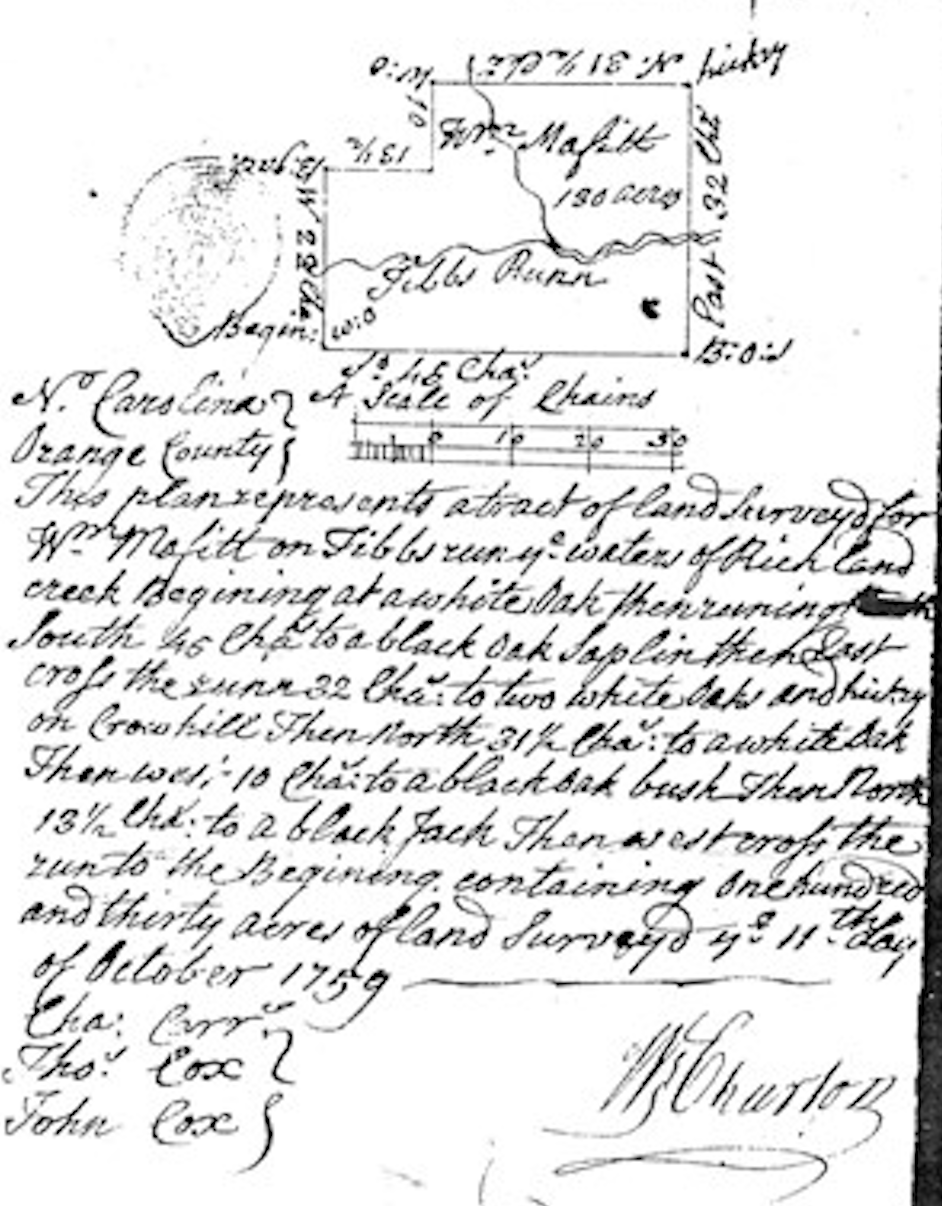 N: 31 ½ Chs
hickry
W:O
10
Wm Mafitt
130 acres
13 ½
B: Jack
W 22 Chs
East 32 Chs
Tibbs Runn
Begin:
W:O
B:O:s
So. 45 Chas
No. Carolina
Orange County
A Scale of Chains
0 10 20 30
This plan represents a tract of land Surveyd for
Wm Mafitt on Tibbs run ye waters of Rich land
creek Begining at a white Oak then runing
South 45 Chas to a black Oak Saplin then East
cross the runn 32 Chas: to two white Oaks and hickry
on Crowhill Then North 31 ½ Chas: to a white Oak
Then west 10 Chas: to a black Oak bush Then North
13 ½ Chs: to a black Jack Then west cross the
run to the Begining containing One hundred
and thirty acres of land Surveyd ye 11th day
of October 1759
Cha: Carrs
Thos Cox
John Cox
W Churton